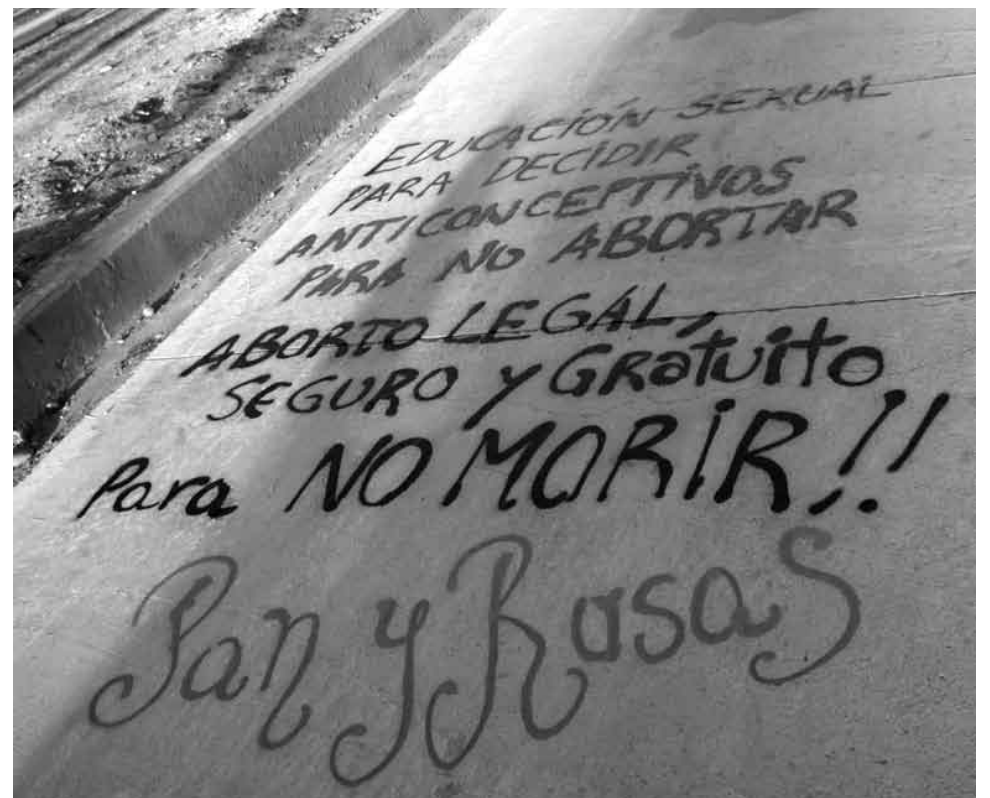 EDUCACIÓN SEXUAL
PARA DECIDIR
ANTICONCEPTIVOS
PARA NO ABORTAR
ABORTO LEGAL,
SEGURO y GRatuito
Para NO MORIR!!
Pan y Rosas